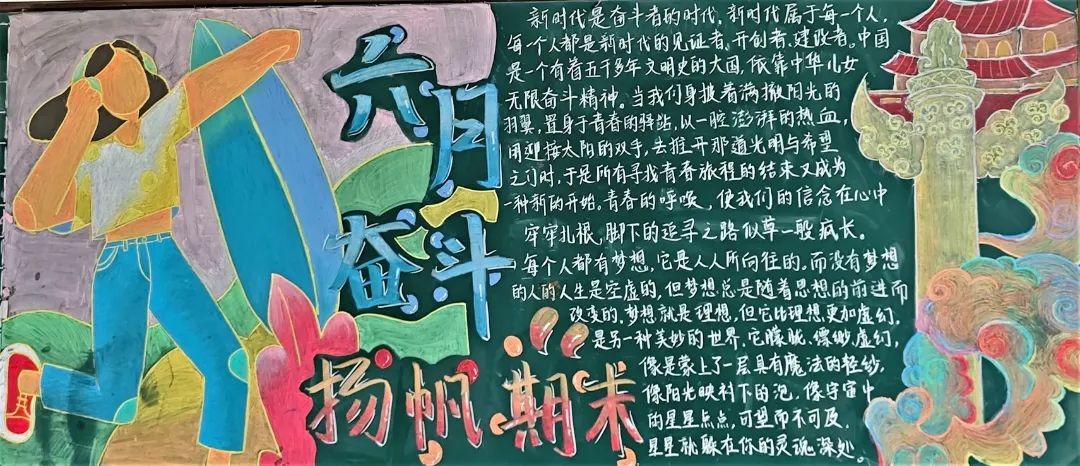 六月
奋斗
扬帆期末
新时代是奋斗者的时代。新时代属于每一个人,
每一个人都是新时代的见证者、开创者、建设者。中国
是一个有着五千多年文明史的大国,依靠中华儿女
无限奋斗精神。当我们身披着满撒阳光的
羽翼,置身于青春的驿站,以一腔澎湃的热血,
用迎接太阳的双手,去推开那道光明与希望
之门时,于是所有寻找青春旅程的结束又成为
一种新的开始。青春的呼唤,使我们的信念在心中
牢牢扎根,脚下的追寻之路似草一般疯长。
每个人都有梦想,它是人人所向往的。而没有梦想
的人的人生是空虚的,但梦想总是随着思想的前进而
改变的。梦想就是理想,但它比理想更加虚幻,
是另一种美妙的世界,它朦胧、缥缈、虚幻,
像是蒙上了一层具有魔法的轻纱,
像阳光映衬下的泡,像宇宙中
的星星点点,可望而不可及,
星星就躲在你的灵魂深处。